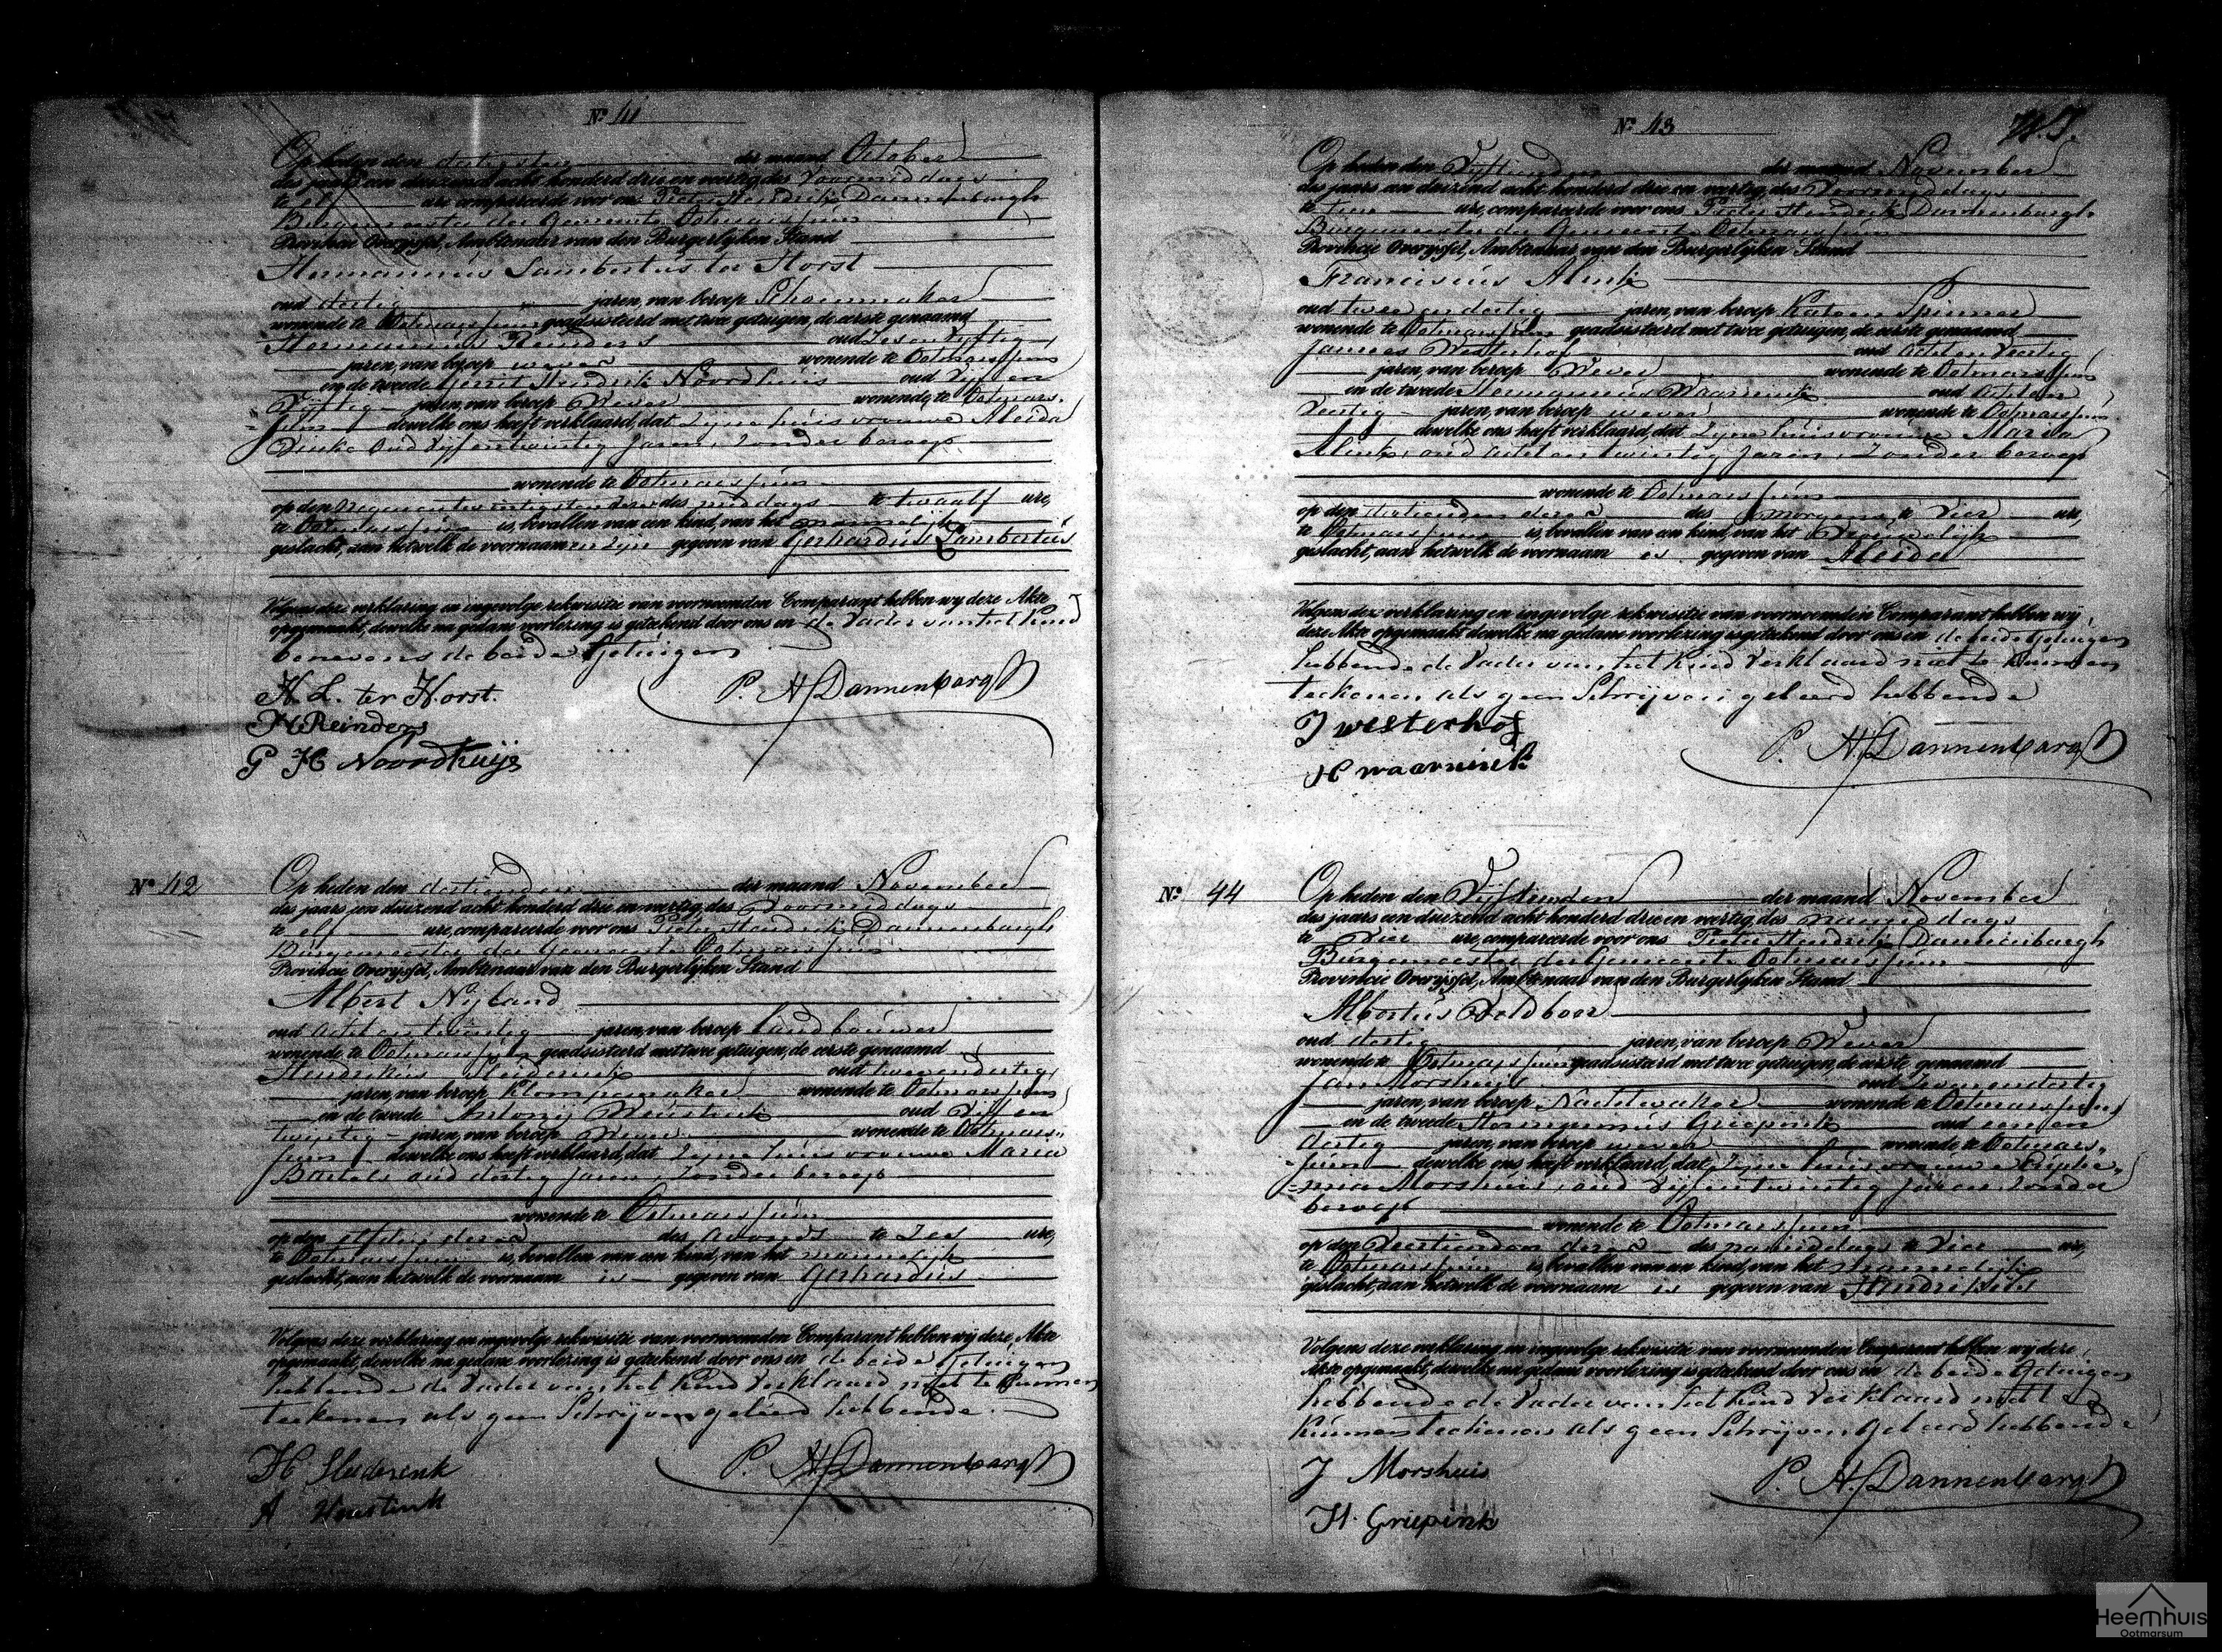 Nº 41
Op heden den dertigsten der maand October
des jaars een duizend acht honderd drie en veertig, des Voormiddags
te elf ure compareerde voor ons Pieter Hendrik Dannenbargh
Burgemeester der Gemeente Ootmarssum
Provincie Overyssel, Ambtenaar van den Burgerlyken Stand
Hermannus Lambertus ter Horst
oud dertig jaren, van beroep Schoenmaker
wonende te Ootmarssum geadsisteerd met twee getuigen, de eerste genaamd
Hermannus Reinders oud Zesenvyftig
jaren, van beroep wever wonende te Ootmarssum
en de tweede Gerrit Hendrik Noordhuis oud Vijf en
Vijftig jaren, van beroep Wever wonende te Ootmars-
sum dewelke ons heeft verklaard, dat Zyne huisvrouwe Aleida
oud Vijfentwintig Jaren, Zonder beroep
wonende te Ootmarssum
op den Negenentwintigsten dezer des middags te twaalf ure,
te Ootmarssum is bevallen van een kind, van het mannelijk
geslacht, aan hetwelk de voornaamen Zijn gegeven van Gerhardus Lambertus
Volgens deze verklaring en ingevolge rekwisitie van voornoemden Comparant hebben wy deze Akte
opgemaakt, dewelke na gedane voorlezing is getekend door ons en de Vader van het Kind
benevens de beide Getuigen
H. L. ter Horst. P. H. Dannenbargh
H Reinders
G H Noordhuijs
Nº 42
Op heden den dertienden der maand November
des jaars een duizend acht honderd drie en veertig, des Voormiddags
te elf ure, compareerde voor ons Pieter Hendrik Dannenbargh
Burgemeester der Gemeente Ootmarssum
Provincie Overyssel, Ambtenaar van den Burgerlyken Stand
Albert Nijland
oud acht en twintig jaren, van beroep Landbouwer
wonende te Ootmarssum geadsisteerd met twee getuigen, de eerste genaamd
Hendrikus Sleiderink oud tweeendertig
jaren, van beroep Klompemaker wonende te Ootmarssum
en de tweede Antonij oud Vijf en
twintig jaren, van beroep Wever wonende te Ootmars-
sum dewelke ons heeft verklaard, dat Zijne huisvrouwe Maria
Bartels oud dertig Jaren, Zonder beroep
wonende te Ootmarssum
op den elfden dezer des Avonds te Zes ure,
te Ootmarssum is bevallen van een kind, van het mannelijk
geslacht, aan hetwelk de voornaam is gegeven van Gerhardus
Volgens deze verklaring en ingevolge rekwisitie van voornoemden Comparant hebben wij deze Akte
opgemaakt, dewelke na gedane voorlezing is getekend door ons en de beide Getuigen
hebbende de Vader van het Kind Verklaard niet te Kunnen
teekenen als geen Schrijven geleerd hebbende.
H P. H. Dannenbargh
A
Nº 43
Op heden den Vyftienden der maand November
des jaars een duizend acht honderd drie en veertig, des Voormiddags
te tien ure, compareerde voor ons Pieter Hendrik Dannenbargh
Burgemeester der Gemeente Ootmarssum
Provincie Overyssel, Ambtenaar van den Burgerlyken Stand
Franciscus Alink
oud twee en dertig jaren, van beroep Katoen Spinner
wonende te Ootmarssum geadsisteerd met twee getuigen, de eerste genaamd
Jannes Westerhof oud Acht en Veertig
jaren, van beroep Wever wonende te Ootmarssum
en de tweede Hermannus Waarnink oud Acht en
Veertig jaren, van beroep wever wonende te Ootmarssum
dewelke ons heeft verklaard, dat Zyne huisvrouwe Maria
Alink, oud acht en twintig Jaren, Zonder beroep
wonende te Ootmarssum
op den dertienden dezer des morgens te Vier ure,
te Ootmarssum is bevallen van een kind, van het Vrouwelijk
geslacht, aan hetwelk de voornaam is gegeven van Aleida
Volgens deze verklaring en ingevolge rekwisitie van voornoemden Comparant hebben wij
deze Akte opgemaakt dewelke na gedane voorlezing is getekend door ons en de beide Getuigen
hebbende de Vader van het Kind Verklaard niet te Kunnen
teekenen als geen Schrijven geleerd hebbende
J westerhof P. H. Dannenbargh
H waarnink
Nº 44
Op heden den Vijftienden der maand November
des jaars een duizend acht honderd drie en veertig, des namiddags
te Vier ure, compareerde voor ons Pieter Hendrik Dannenbargh
Burgemeester der Gemeente Ootmarssum
Provincie Overijssel, Ambtenaar van den Burgerlyken Stand
Albertus Veldboer
oud dertig jaren, van beroep Wever
wonende te Ootmarssum geadsisteerd met twee getuigen, de eerste genaamd
Jan Morshuis oud Zevenendertig
jaren, van beroep Nachtwaker wonende te Ootmarssum
en de tweede Hermannus Griepink oud een en
dertig jaren, van beroep wever wonende te Ootmars-
sum dewelke ons heeft verklaard, dat Zijne huisvrouwe Euphe-
mia Morshuis, oud Vijfentwintig Jaren Zonder
beroep
wonende te Ootmarssum
op den Veertienden dezer des namiddags te Vier ure,
te Ootmarssum is bevallen van een kind, van het Mannelijk
geslacht, aan hetwelk de voornaam is gegeven van Hendrikus
Volgens deze verklaring en ingevolge rekwisitie van voornoemden Comparant hebben wij deze
Akte opgemaakt, dewelke na gedane voorlezing is getekend door ons en de beide Getuigen
hebbende de Vader van het Kind Verklaard niet te
Kunnen teekenen als geen Schrijven Geleerd hebbende
J Morshuis P. H. Dannenbargh
H. Griepink
Heemhuis
Ootmarsum